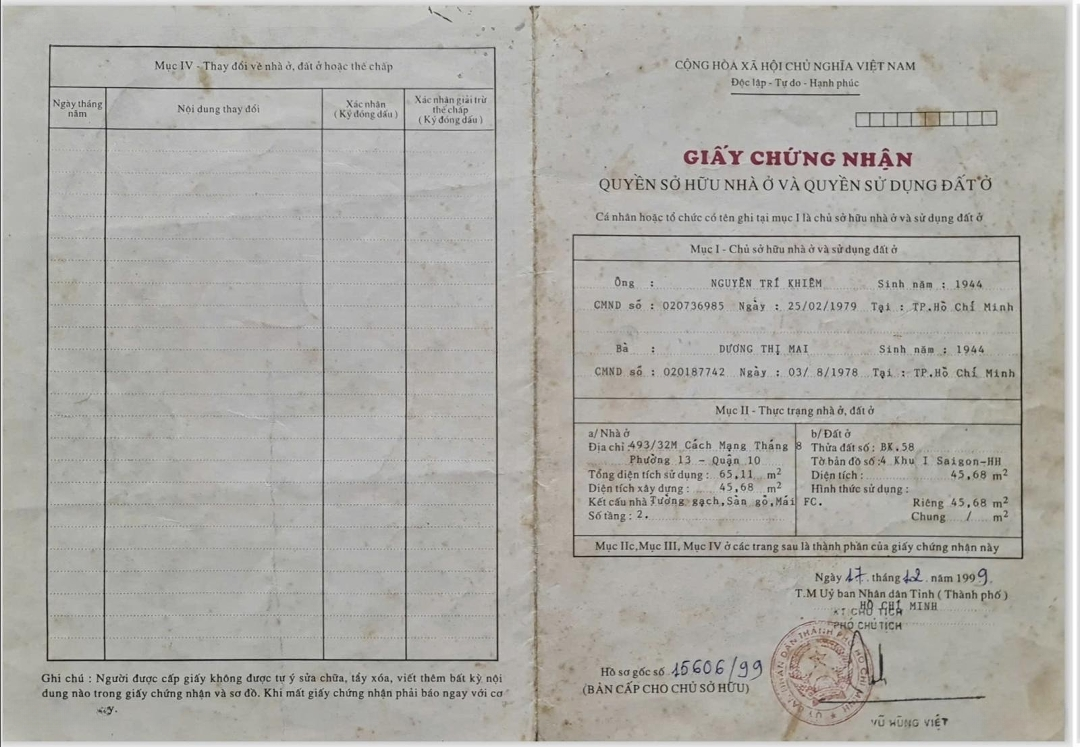 Mục IV - Thay đổi về nhà ở, đất ở hoặc thế chấp
Ngày tháng năm
Nội dung thay đổi
Xác nhận
( Ký đóng dấu )
Xác nhận giải trừ
thế chấp
( Ký đóng dấu )
Ghi chú : Người được cấp giấy không được tự ý sửa chữa, tẩy xóa, viết thêm bất kỳ nội
dung nào trong giấy chứng nhận và sơ đồ. Khi mất giấy chứng nhận phải báo ngay với cơ
CỘNG HÒA XÃ HỘI CHỦ NGHĨA VIỆT NAM
Độc lập - Tự do - Hạnh phúc
GIẤY CHỨNG NHẬN
QUYỀN SỞ HỮU NHÀ Ở VÀ QUYỀN SỬ DỤNG ĐẤT Ở
Cá nhân hoặc tổ chức có tên ghi tại mục I là chủ sở hữu nhà ở và sử dụng đất ở
Mục I - Chủ sở hữu nhà ở và sử dụng đất ở
Ông : NGUYỄN TRÍ KHIÊM Sinh năm : 1944
CMND số : 020736985 Ngày : 25/02/1979 Tại : TP.Hồ Chí Minh
Bà : DƯƠNG THỊ MAI Sinh năm : 1944
CMND số : 020187742 Ngày : 03/ 8/1978 Tại : TP.Hồ Chí Minh
Mục II - Thực trạng nhà ở, đất ở
a/ Nhà ở
Địa chỉ : 493/32M Cách Mạng Tháng 8
Phường 13 - Quận 10
Tổng diện tích sử dụng : 65,11 m²
Diện tích xây dựng : 45,68 m²
Kết cấu nhà : Tường gạch, Sàn gỗ, Mái FC.
Số tầng : 2.
b/ Đất ở
Thửa đất số : BK.58
Tờ bản đồ số : 4 Khu I Saigon-HH
Diện tích : 45,68 m²
Hình thức sử dụng :
Riêng 45,68 m²
Chung / m²
Mục IIc, Mục III, Mục IV ở các trang sau là thành phần của giấy chứng nhận này
Ngày 17 tháng 12 năm 1999.
T.M Uỷ ban Nhân dân Tỉnh ( Thành phố )
HỒ CHÍ MINH
KT CHỦ TỊCH
PHÓ CHỦ TỊCH
Hồ sơ gốc số 15606/99
(BẢN CẤP CHO CHỦ SỞ HỮU)
VŨ HÙNG VIỆT